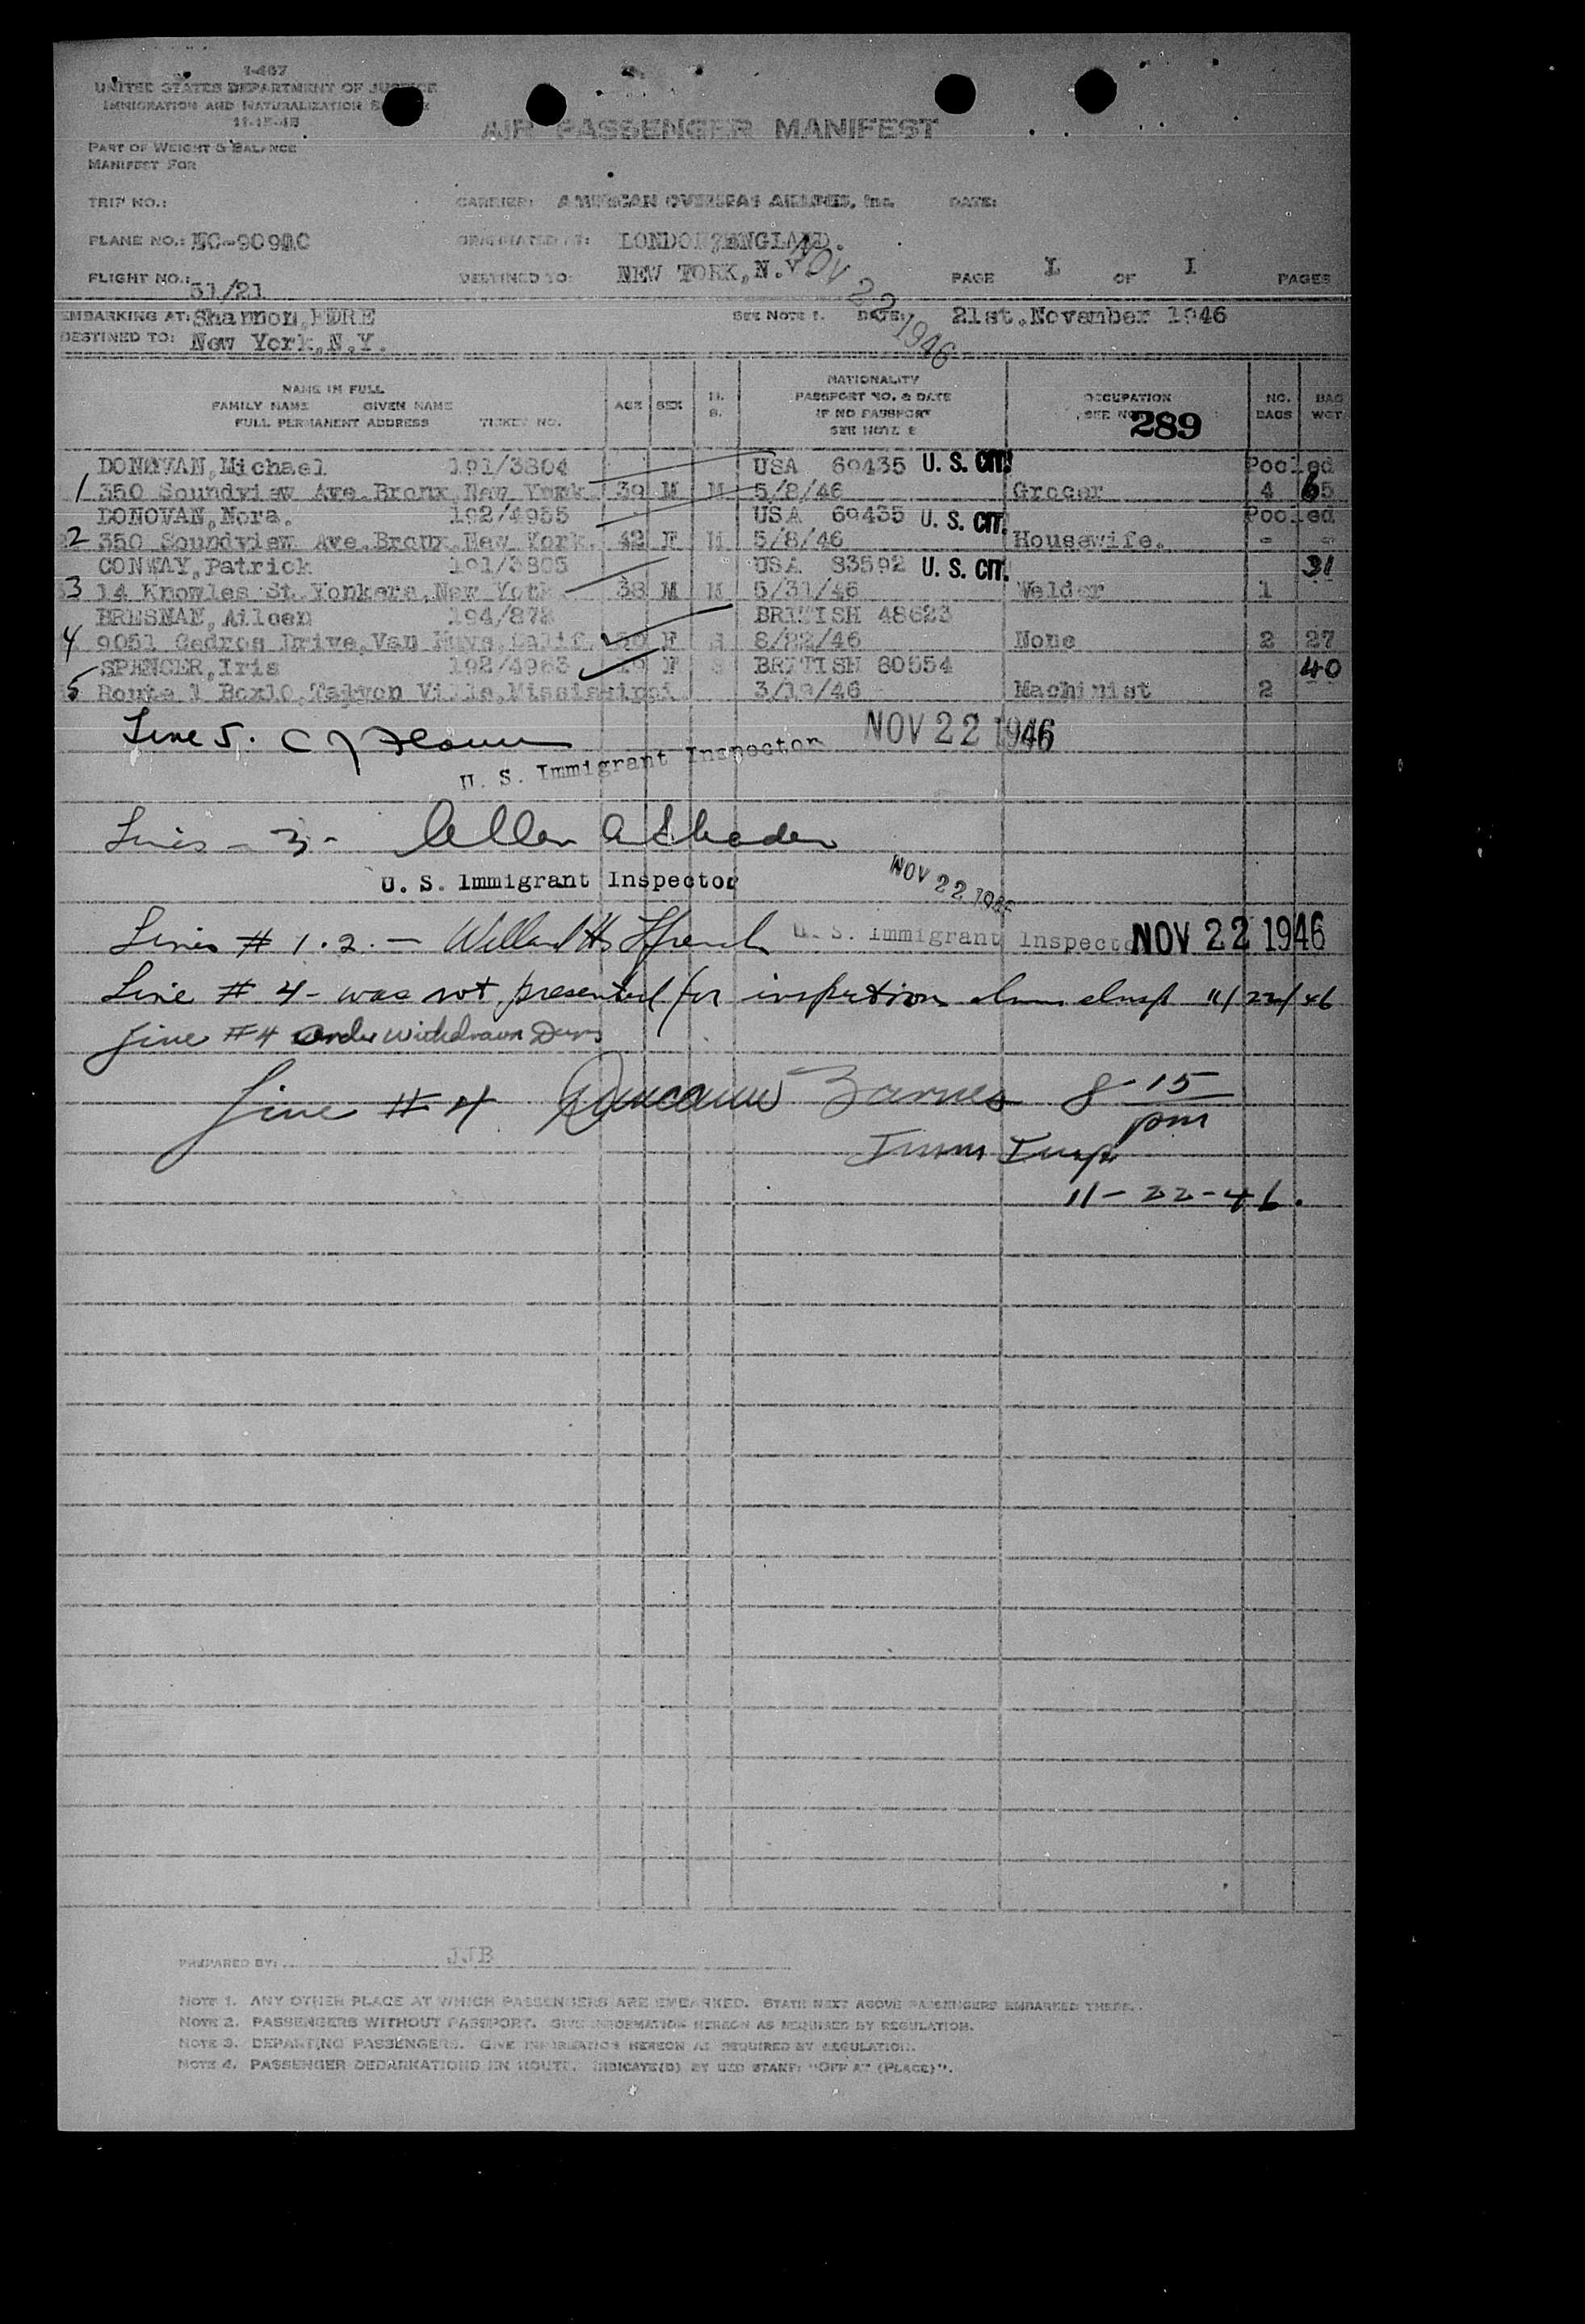 I-467
UNITED STATES DEPARTMENT OF JUSTICE
IMMIGRATION AND NATURALIZATION
11-15-45
AIR PASSENGER MANIFEST
PART OF WEIGHT & BALANCE
MANIFEST FOR
TRIP NO.: CARRIER: AMERICAN OVERSEAS AIRLINES, Inc. DATE:
PLANE NO.: NC-90910 ORIGINATED AT: LONDON, ENGLAND.
FLIGHT NO.: 51/21 DESTINED TO: NEW YORK, N.Y. PAGE I OF I PAGES
NOV 22 1946
EMBARKING AT: Shannon, EIRE SEE NOTE 1. DATE: 21st. November 1946
DESTINED TO: New York, N.Y.
NAME IN FULL
FAMILY NAME GIVEN NAME
FULL PERMANENT ADDRESS TICKET NO. AGE SEX M. S. NATIONALITY PASSPORT NO. & DATE IF NO PASSPORT SEE NOTE 2 OCCUPATION NO. BAGS BAG WGT.
289
DONOVAN, Michael 191/3804 USA 69435 U. S. CIT. Pooled
1 350 Soundview Ave. Bronx, New York. 39 M M 5/8/46 Grocer 4 65
DONOVAN, Nora. 192/4955 USA 69435 U. S. CIT. Pooled
2 350 Soundview Ave. Bronx, New York. 42 F M 5/8/46 Housewife. - -
CONWAY, Patrick 191/3805 USA 83592 U. S. CIT. 31
3 14 Knowles St. Yonkers, New York 38 M M 5/31/46 Welder 1
BRESNAN, Aileen 194/872 BRITISH 48623
4 9051 Cedros Drive, Van Nuys, Calif. F S 8/22/46 None 2 27
SPENCER, Iris 192/4963 F S BRITISH 60554 40
5 Route 1 Box10, Ville, Mississippi 3/19/46 Machinist 2
Line 5. C J
U. S. Immigrant Inspector NOV 22 1946
Lines - 3 - Allen A
U. S. Immigrant Inspector NOV 22 1946
Lines # 1.2. - Willard H. Ffrench U. S. Immigrant Inspector NOV 22 1946
Line # 4 - was not presented for inspection 11/22/46
Line #4 Order Withdrawn
Line #4 Barnes 8 15 pm
Imm Insp
11-22-46.
PREPARED BY: JJB
NOTE 1. ANY OTHER PLACE AT WHICH PASSENGERS ARE EMBARKED. STATE NEXT ABOVE PASSENGERS EMBARKED THERE.
NOTE 2. PASSENGERS WITHOUT PASSPORT. GIVE INFORMATION HEREON AS REQUIRED BY REGULATION.
NOTE 3. DEPARTING PASSENGERS. GIVE INFORMATION HEREON AS REQUIRED BY REGULATION.
NOTE 4. PASSENGER DEBARKATIONS EN ROUTE. INDICATE(D) BY USED STAMP: "OFF AT (PLACE)".